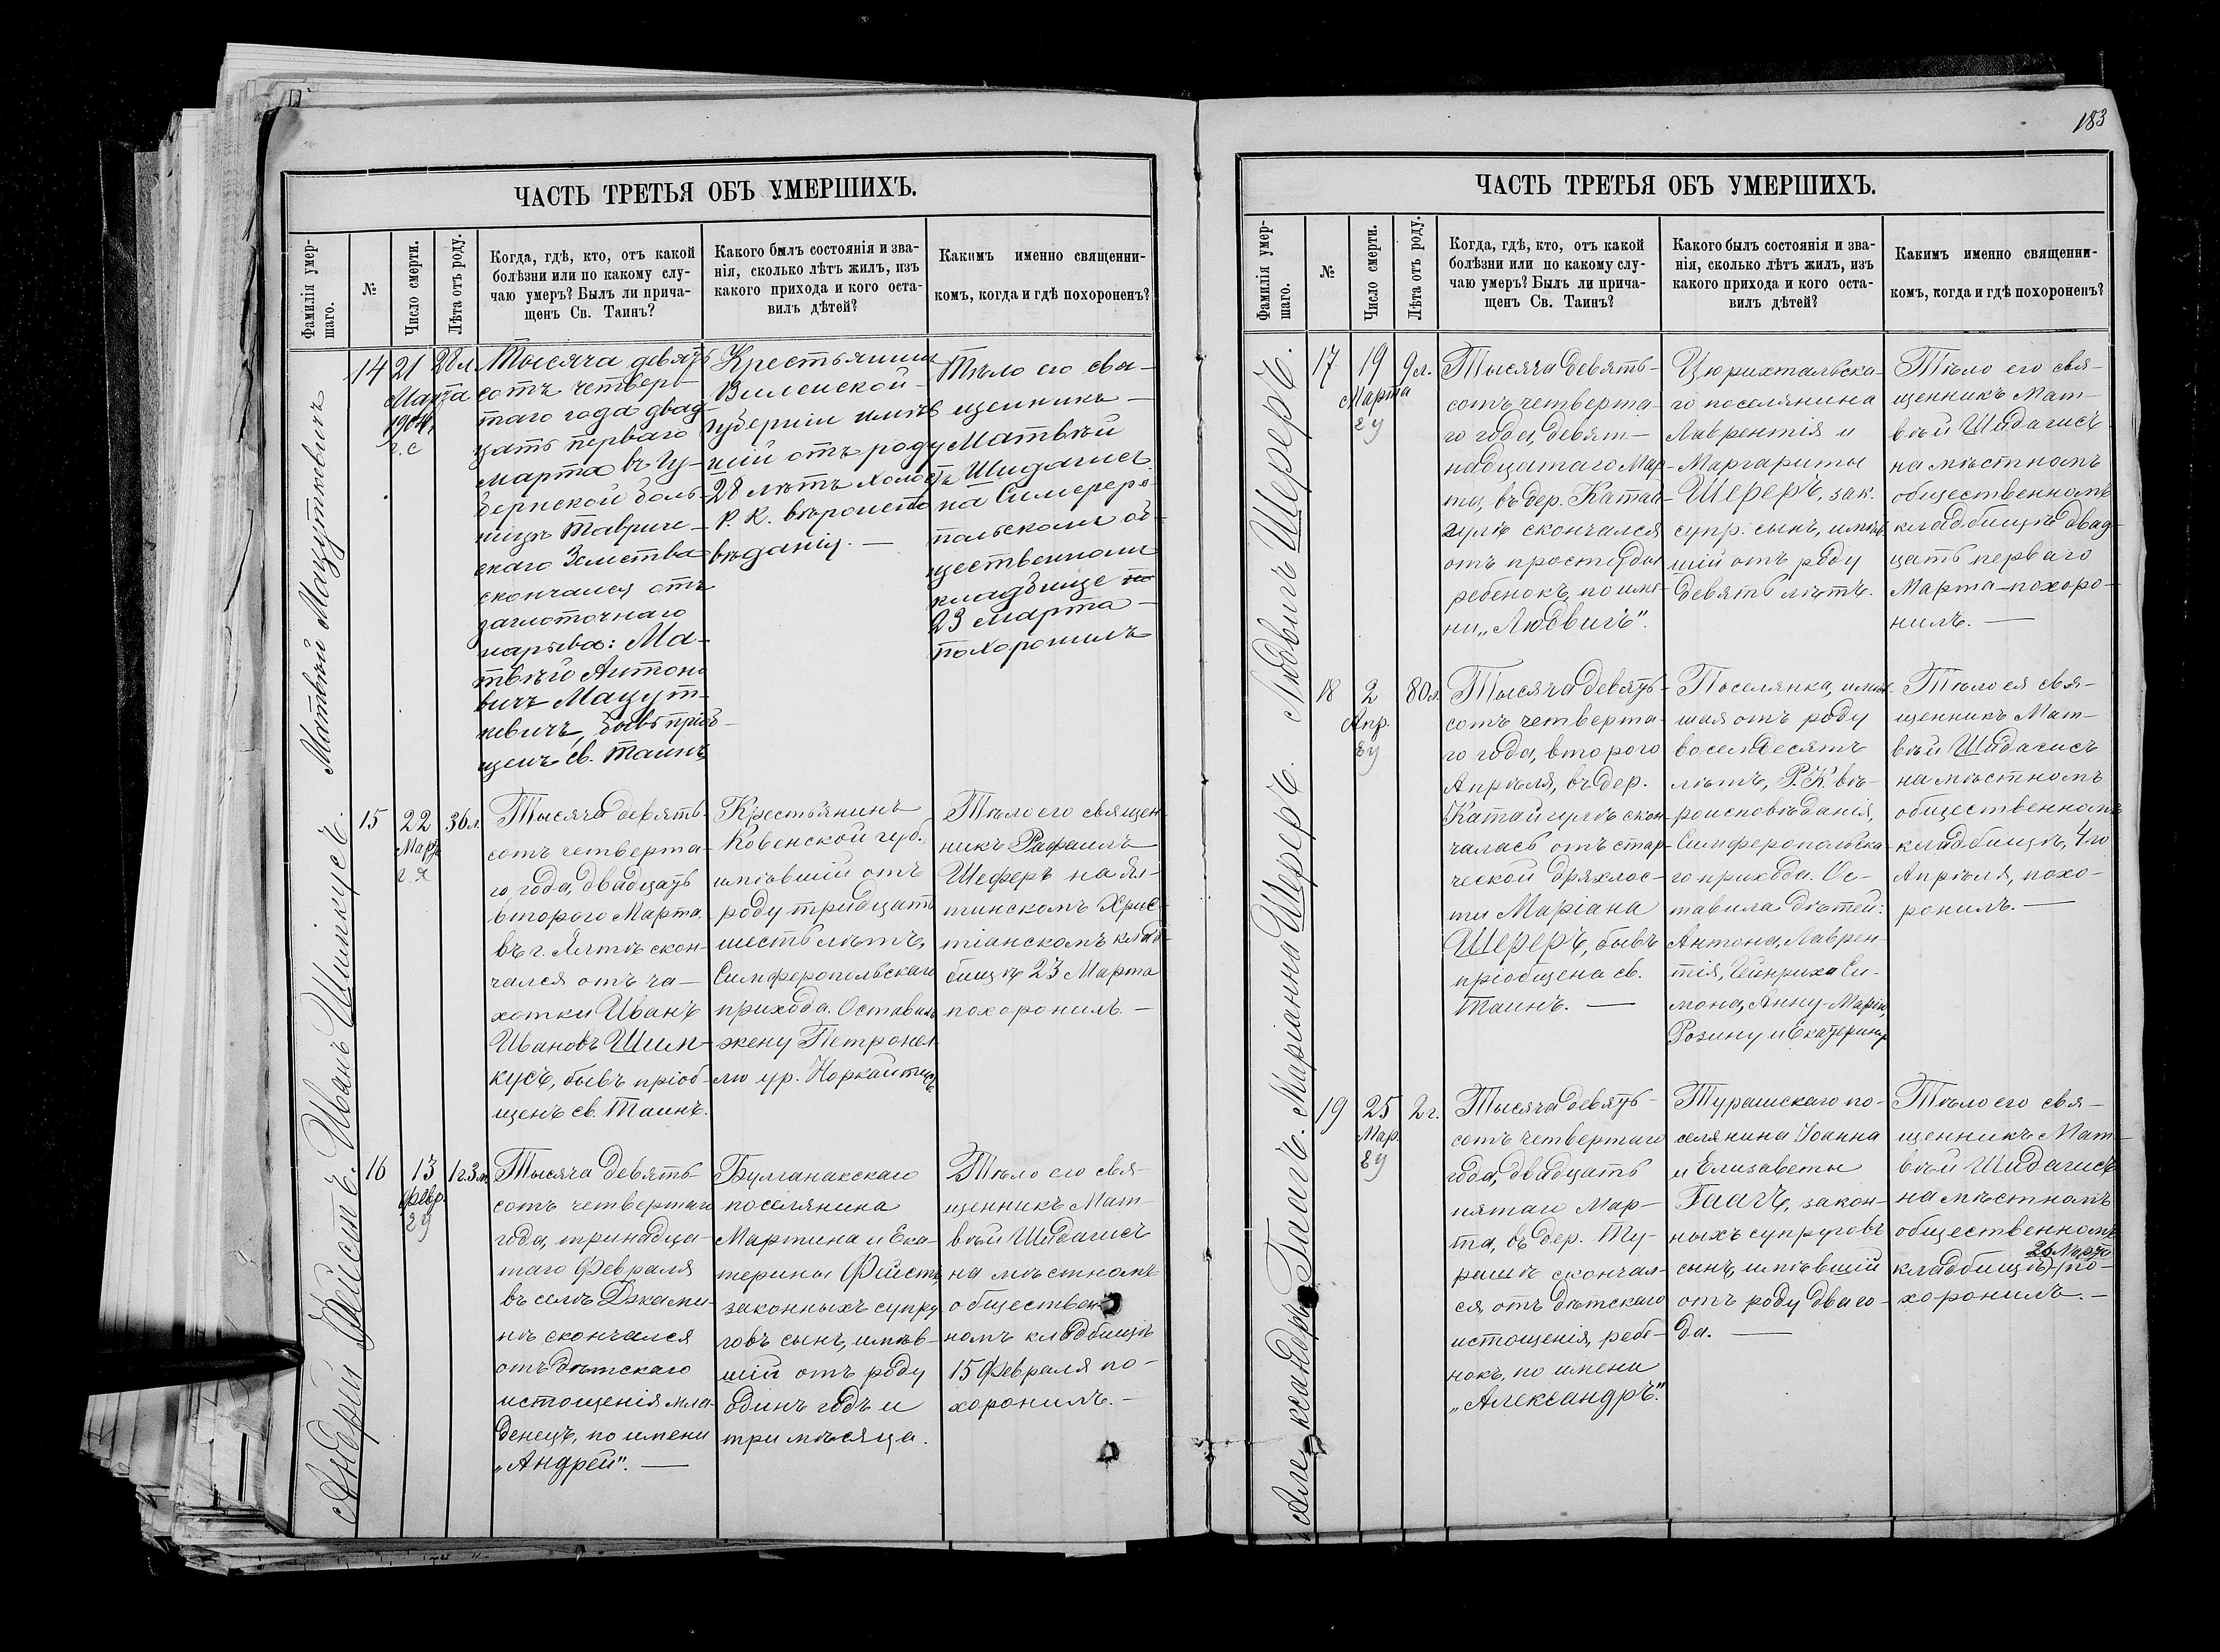 183
ЧАСТЬ ТРЕТЬЯ ОБЪ УМЕРШИХЪ.
Фамилія умер-
шаго.
№
Число смерти.
Лѣта отъ роду.
Когда, гдѣ, кто, отъ какой
болѣзни или по какому слу-
чаю умеръ? Былъ ли прича-
щенъ Св. Таинъ?
Какого былъ состоянія и зва-
нія, сколько лѣтъ жилъ, изъ
какого прихода и кого оста-
вилъ дѣтей?
Какимъ именно священни-
комъ, когда и гдѣ похороненъ?
Матвѣй Мацуткевичъ
14
21
Марта
1904
г. с
28 л.
Тысяча девять
сотъ четвер-
таго года двад-
цать перваго
марта въ Гу-
бернской боль-
ницѣ Тавриче-
скаго Земства
скончался отъ
заглоточнаго
нарыва: Ма-
твѣй Антоно
вичъ Мацут-
кевичъ, бывъ пріоб-
щенъ св. Таинъ
Крестьянинъ
Виленской
губерніи имѣв
шій отъ роду
28 лѣтъ холостъ
Р. К. вѣроиспо
вѣданія. —
Тѣло его свя-
щенникъ —
Матвѣй
Шидагисъ
на Симферо-
польскомъ об-
щественномъ
кладбище
23 Марта —
похоронилъ
Иванъ Шимкусъ.
15
22
Март
г. Я
36 л.
Тысяча девять-
сотъ четверта-
го года, двадцать
второго Марта,
въ г. Ялтѣ скон-
чался отъ ча-
хотки Иванъ
Ивановъ Шим-
кусъ, бывъ пріоб-
щенъ св. Таинъ.
Крестьянинъ
Ковенской губ.,
имѣвшій отъ
роду тридцать
шесть лѣтъ,
Симферопольскаго
прихода. Оставилъ
жену Петронел-
лю ур. Норкайтисъ
Тѣло его священ-
никъ Рафаилъ
Шеферъ на Ял-
тинскомъ Хрис-
тіанскомъ клад-
бищѣ 23 Марта
похоронилъ. —
Андрей Фейстъ.
16
13
Февр.
ЕУ
1 г. 3 м.
Тысяча девять-
сотъ четвертаго
года, тринадца-
таго Февраля
въ селѣ Джами-
нѣ скончался
отъ дѣтскаго
истощенія мла-
денецъ, по имени
„Андрей". —
Булганакскаго
поселянина
Мартина и Ека-
терины Фейстъ
законныхъ супру
говъ сынъ, имѣв-
шій отъ роду
одинъ годъ и
три мѣсяца.
Тѣло его свя-
щенникъ Мат-
вѣй Шидагисъ
на мѣстномъ
обществен-
номъ кладбищѣ
15 Февраля по-
хоронилъ. —
ЧАСТЬ ТРЕТЬЯ ОБЪ УМЕРШИХЪ.
Фамилія умер-
шаго.
№
Число смерти.
Лѣта отъ роду.
Когда, гдѣ, кто, отъ какой
болѣзни или по какому слу-
чаю умеръ? Былъ ли прича-
щенъ Св. Таинъ?
Какого былъ состоянія и зва-
нія, сколько лѣтъ жилъ, изъ
какого прихода и кого оста-
вилъ дѣтей?
Какимъ именно священни-
комъ, когда и гдѣ похороненъ?
Людвигъ Шереръ.
17
19
Марта
ЕУ
9 л.
Тысяча девять-
сотъ четверта-
го года, девят-
надцатаго Мар-
та, въ дер. Катай-
гулѣ скончался
отъ простуды
ребенокъ, по име-
ни „Людвигъ".
Цюрихтальска-
го поселянина
Лаврентія и
Маргариты
Шереръ, зак.
супр. сынъ, имѣв-
шій отъ роду
девять лѣтъ.
Тѣло его свя-
щенникъ Мат-
вѣй Шидагисъ
на мѣстномъ
общественномъ
кладбищѣ двад-
цать перваго
Марта похоро-
нилъ. —
Маріанна Шереръ.
18
2
Апр.
ЕУ
80 л.
Тысяча девять-
сотъ четверта-
го года, второго
Апрѣля, въ дер.
Катайгулѣ скон-
чалась отъ стар-
ческой дряхлос-
ти Маріана
Шереръ, бывъ
пріобщена св.
Таинъ. —
Поселянка, имѣв-
шая отъ роду
восемдесятъ
лѣтъ, Р. К. вѣ-
роисповѣданія,
Симферопольска-
го прихода. Ос-
тавила дѣтей:
Антона, Лаврен-
тія, Гейнриха Си-
мона, Анну-Марію,
Розину и Екатерину
Тѣло ея свя-
щенникъ Мат-
вѣй Шидагисъ
на мѣстномъ
общественномъ
кладбищѣ, 4го
Апрѣля, похо-
ронилъ. —
Александръ Гаагъ.
19
25
Мар.
ЕУ
2 г.
Тысяча девять-
сотъ четвертаго
года, двадцать
пятаго Мар-
та, въ дер. Ту-
рашѣ скончал-
ся, отъ дѣтскаго
истощенія, ребе-
нокъ, по имени
„Александръ".
Турашскаго по-
селянина Іоанна
и Елизаветы
Гаагъ, закон-
ныхъ супруговъ
сынъ, имѣвшій
отъ роду два го-
да. —
Тѣло его свя-
щенникъ Мат-
вѣй Шидагисъ
на мѣстномъ
общественномъ
26 Марта
кладбищѣ по-
хоронилъ. —